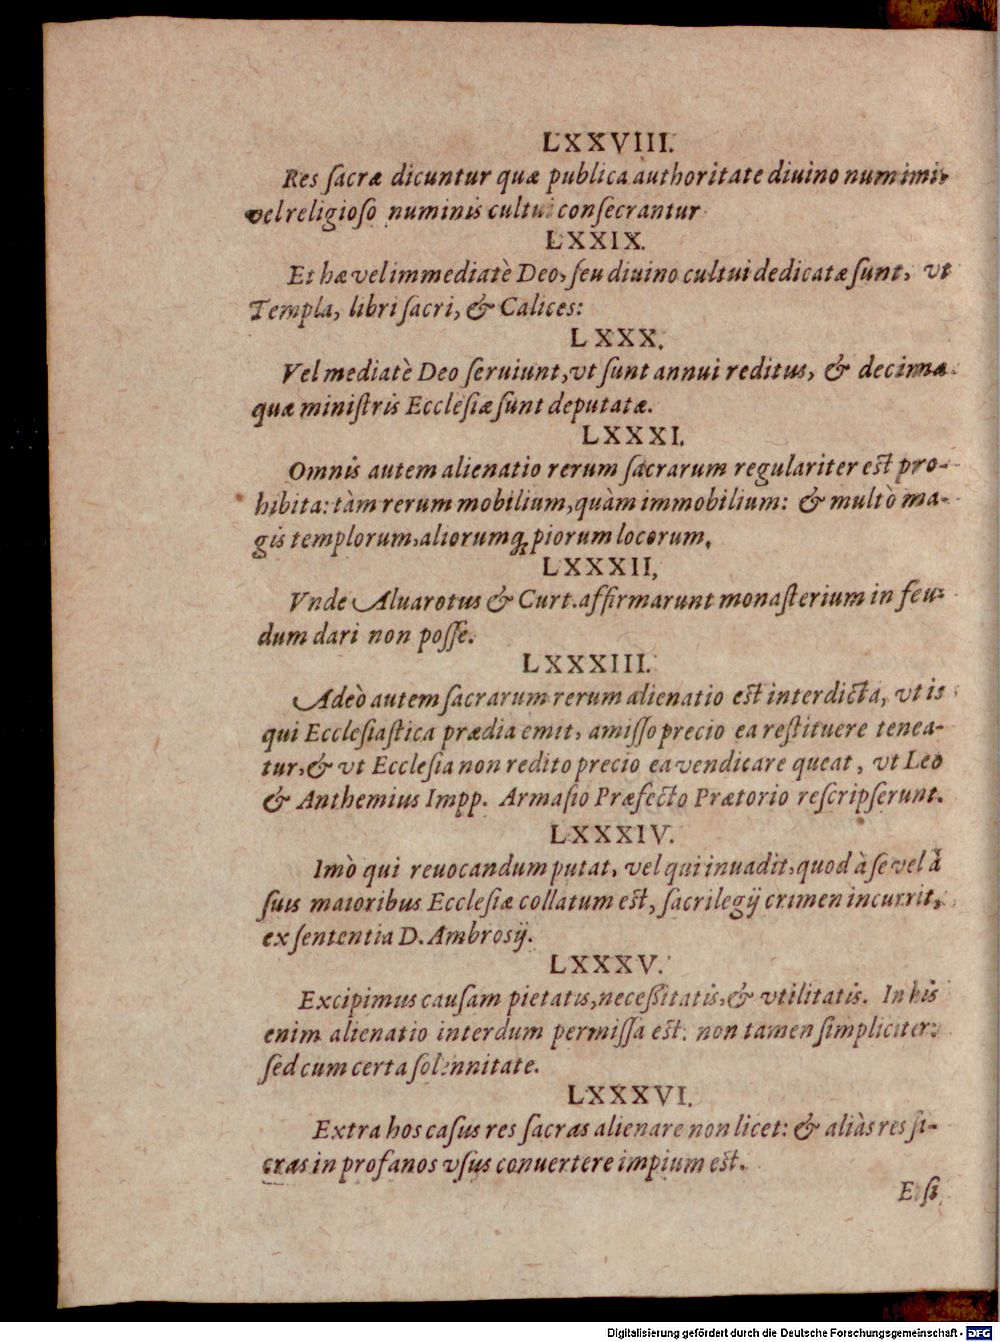 LXXVIII.
Res ſacræ dicuntur quæ publica authoritate diuino numimi,
vel religioſo numinis cultui conſecrantur
LXXIX.
Et hæ vel immediatè Deo, ſeu diuino cultui dedicatæ ſunt, vt
Templa, libri ſacri, & Calices:
LXXX.
Vel mediatè Deo ſeruiunt, vt ſunt annui reditus, & decimæ
quæ miniſtris Eccleſiæ ſunt deputatæ.
LXXXI.
Omnis autem alienatio rerum ſacrarum regulariter eſt pro-
hibita: tàm rerum mobilium, quàm immobilium: & multò ma-
gis templorum, aliorumq́; piorum locorum.
LXXXII,
Vnde Aluarotus & Curt. affirmarunt monaſterium in feu-
dum dari non poſſe.
LXXXIII.
Adeò autem ſacrarum rerum alienatio eſt interdicta, vt is
qui Eccleſiaſtica prædia emit, amiſſo precio ea reſtituere tenea-
tur, & vt Eccleſia non redito precio ea vendicare queat, vt Leo
& Anthemius Impp. Armaſio Præfecto Prætorio reſcripſerunt.
LXXXIV.
Imò qui reuocandum putat, vel qui inuadit, quod à ſe vel à
ſuis maioribus Eccleſiæ collatum eſt, ſacrilegij crimen incurrit,
ex ſententia D. Ambroſij.
LXXXV.
Excipimus cauſam pietatis, neceſſitatis, & vtilitatis. In his
enim alienatio interdum permiſſa eſt: non tamen ſimpliciter:
ſed cum certa ſolennitate.
LXXXVI.
Extra hos caſus res ſacras alienare non licet: & aliàs res ſa-
cras in profanos vſus conuertere impium eſt.
E ſi
Digitalisierung gefördert durch die Deutsche Forschungsgemeinschaft - DFG